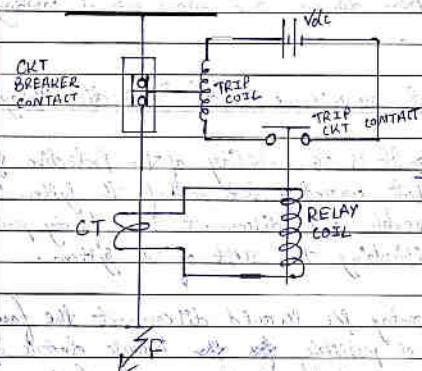 Vdc
CKT
BREAKER
CONTACT
TRIP
COIL
TRIP
CKT CONTACT
CT
RELAY
COIL
F